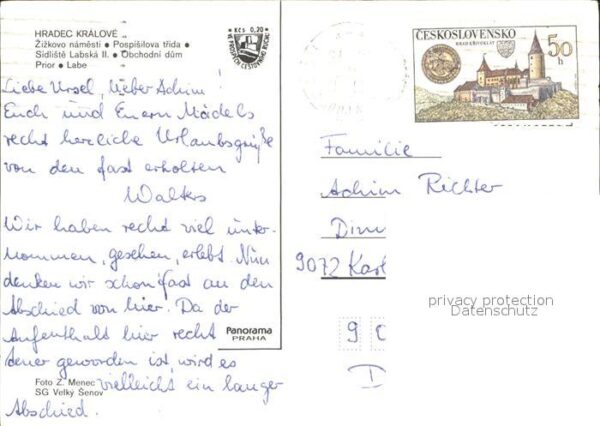 HRADEC KRÁLOVÉ
Žižkovo náměstí • Pospíšilova třída •
Sídliště Labská II. • Obchodní dům
Prior • Labe
Kčs 0,20
Liebe Ursel, lieber Achim!
Euch und Euern Mädels
recht herzliche Urlaubsgrüße
von den fast erholten
Walters
Wir haben recht viel unter-
nommen, gesehen, erlebt. Nun
denken wir schon fast an den
Abschied von hier. Da der
Aufenthalt hier recht
teuer geworden ist, wird es
vielleicht ein langer
Abschied.
Foto Z. Menec
SG Velký Šenov
Panorama
PRAHA
ČESKOSLOVENSKO
HRAD KŘIVOKLÁT
50 h
Familie
Achim Richter
9072 Karl
privacy protection
Datenschutz
9
D